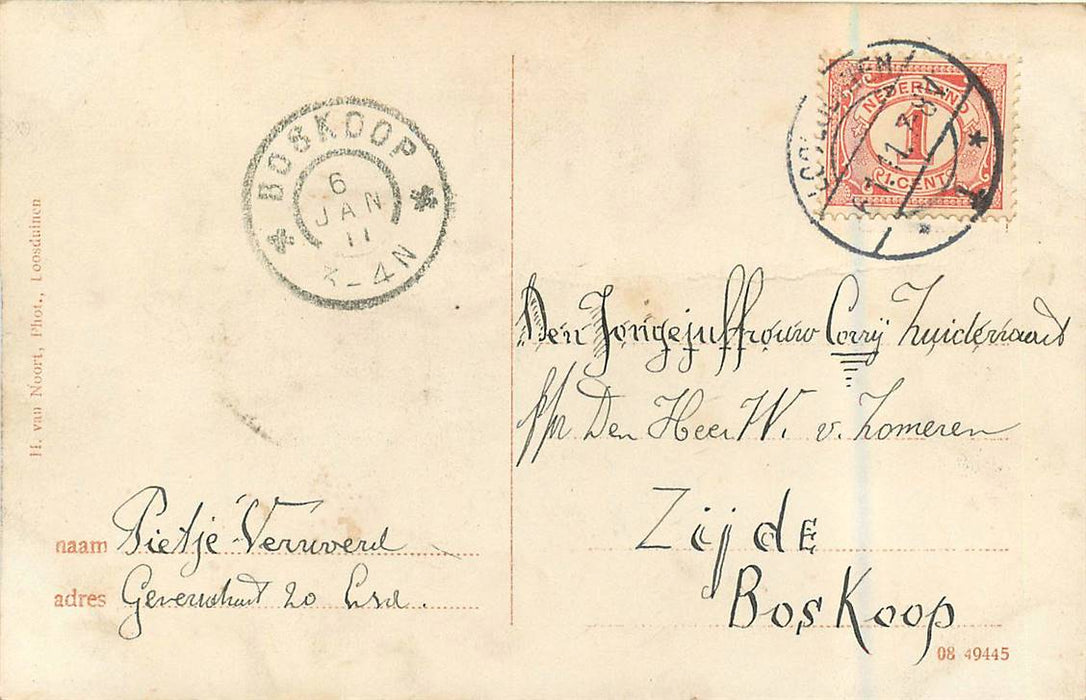 BOSKOOP
6
JAN
11
3-4N
LOOSDUINEN
NEDERLAND
1
1.CENT
H. van Noort, Phot., Loosduinen
Den Jongejuffrouw Corrij
p/a Den Heer W. v. Zomeren
Zijde
Boskoop
naam Pietje
adres 20
08 49445